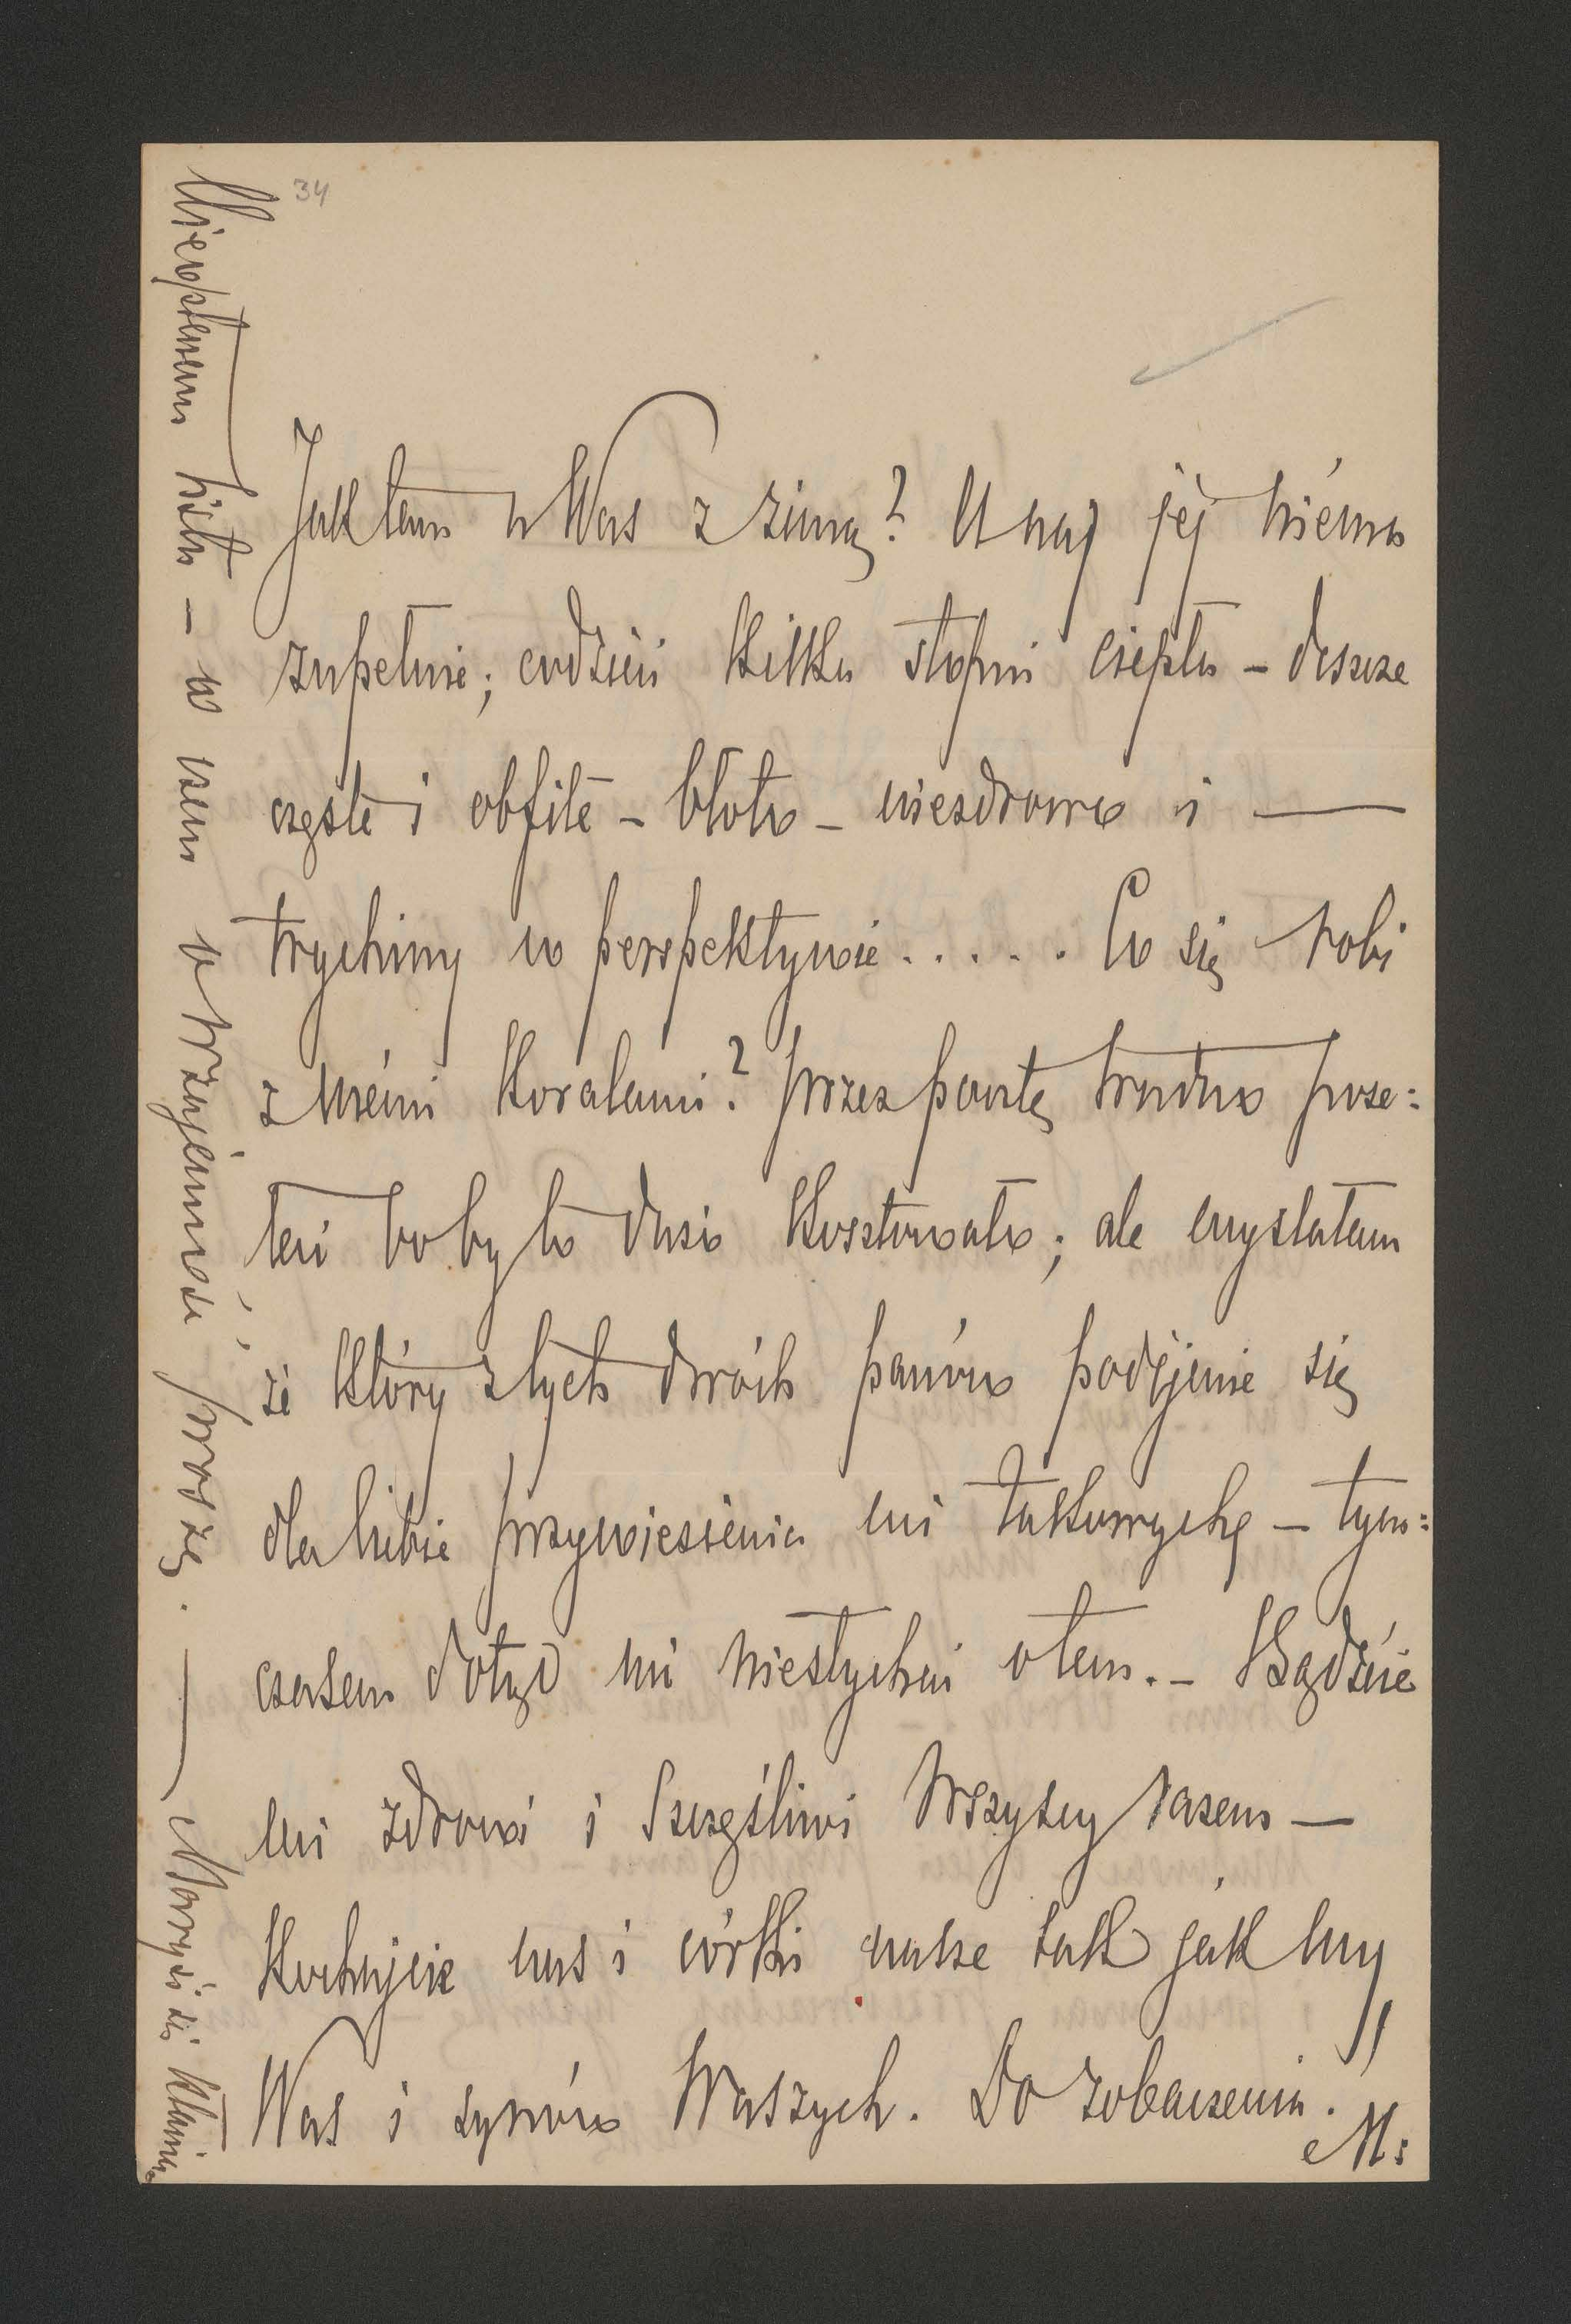 34
Jak tam u Was z zimą? U nas jej niéma
zupełnie; codzień kilka stopni ciepła – deszcze
częste i obfite – błoto – niezdrowo i —
trychiny w perspektywie..... Co się robi
z mémi koralami? przez pocztę trudno prze:
  bo by to dużo kosztowało; ale myslałam
że który z tych dwóch panów podéjmie się
dla Ciebie przywiezienia mi takowych – tym:
czasem dotąd nic niesłychać o tem. – Bądźcie
mi zdrowi i Szczęśliwi Wszyscy razem —
Kochajcie nas i córki nasze tak jak my
Was i synów Waszych. Do zobaczenia.
M:
Nie czytałam listu – w czem o wzajemność proszę. — Maryś się kłania